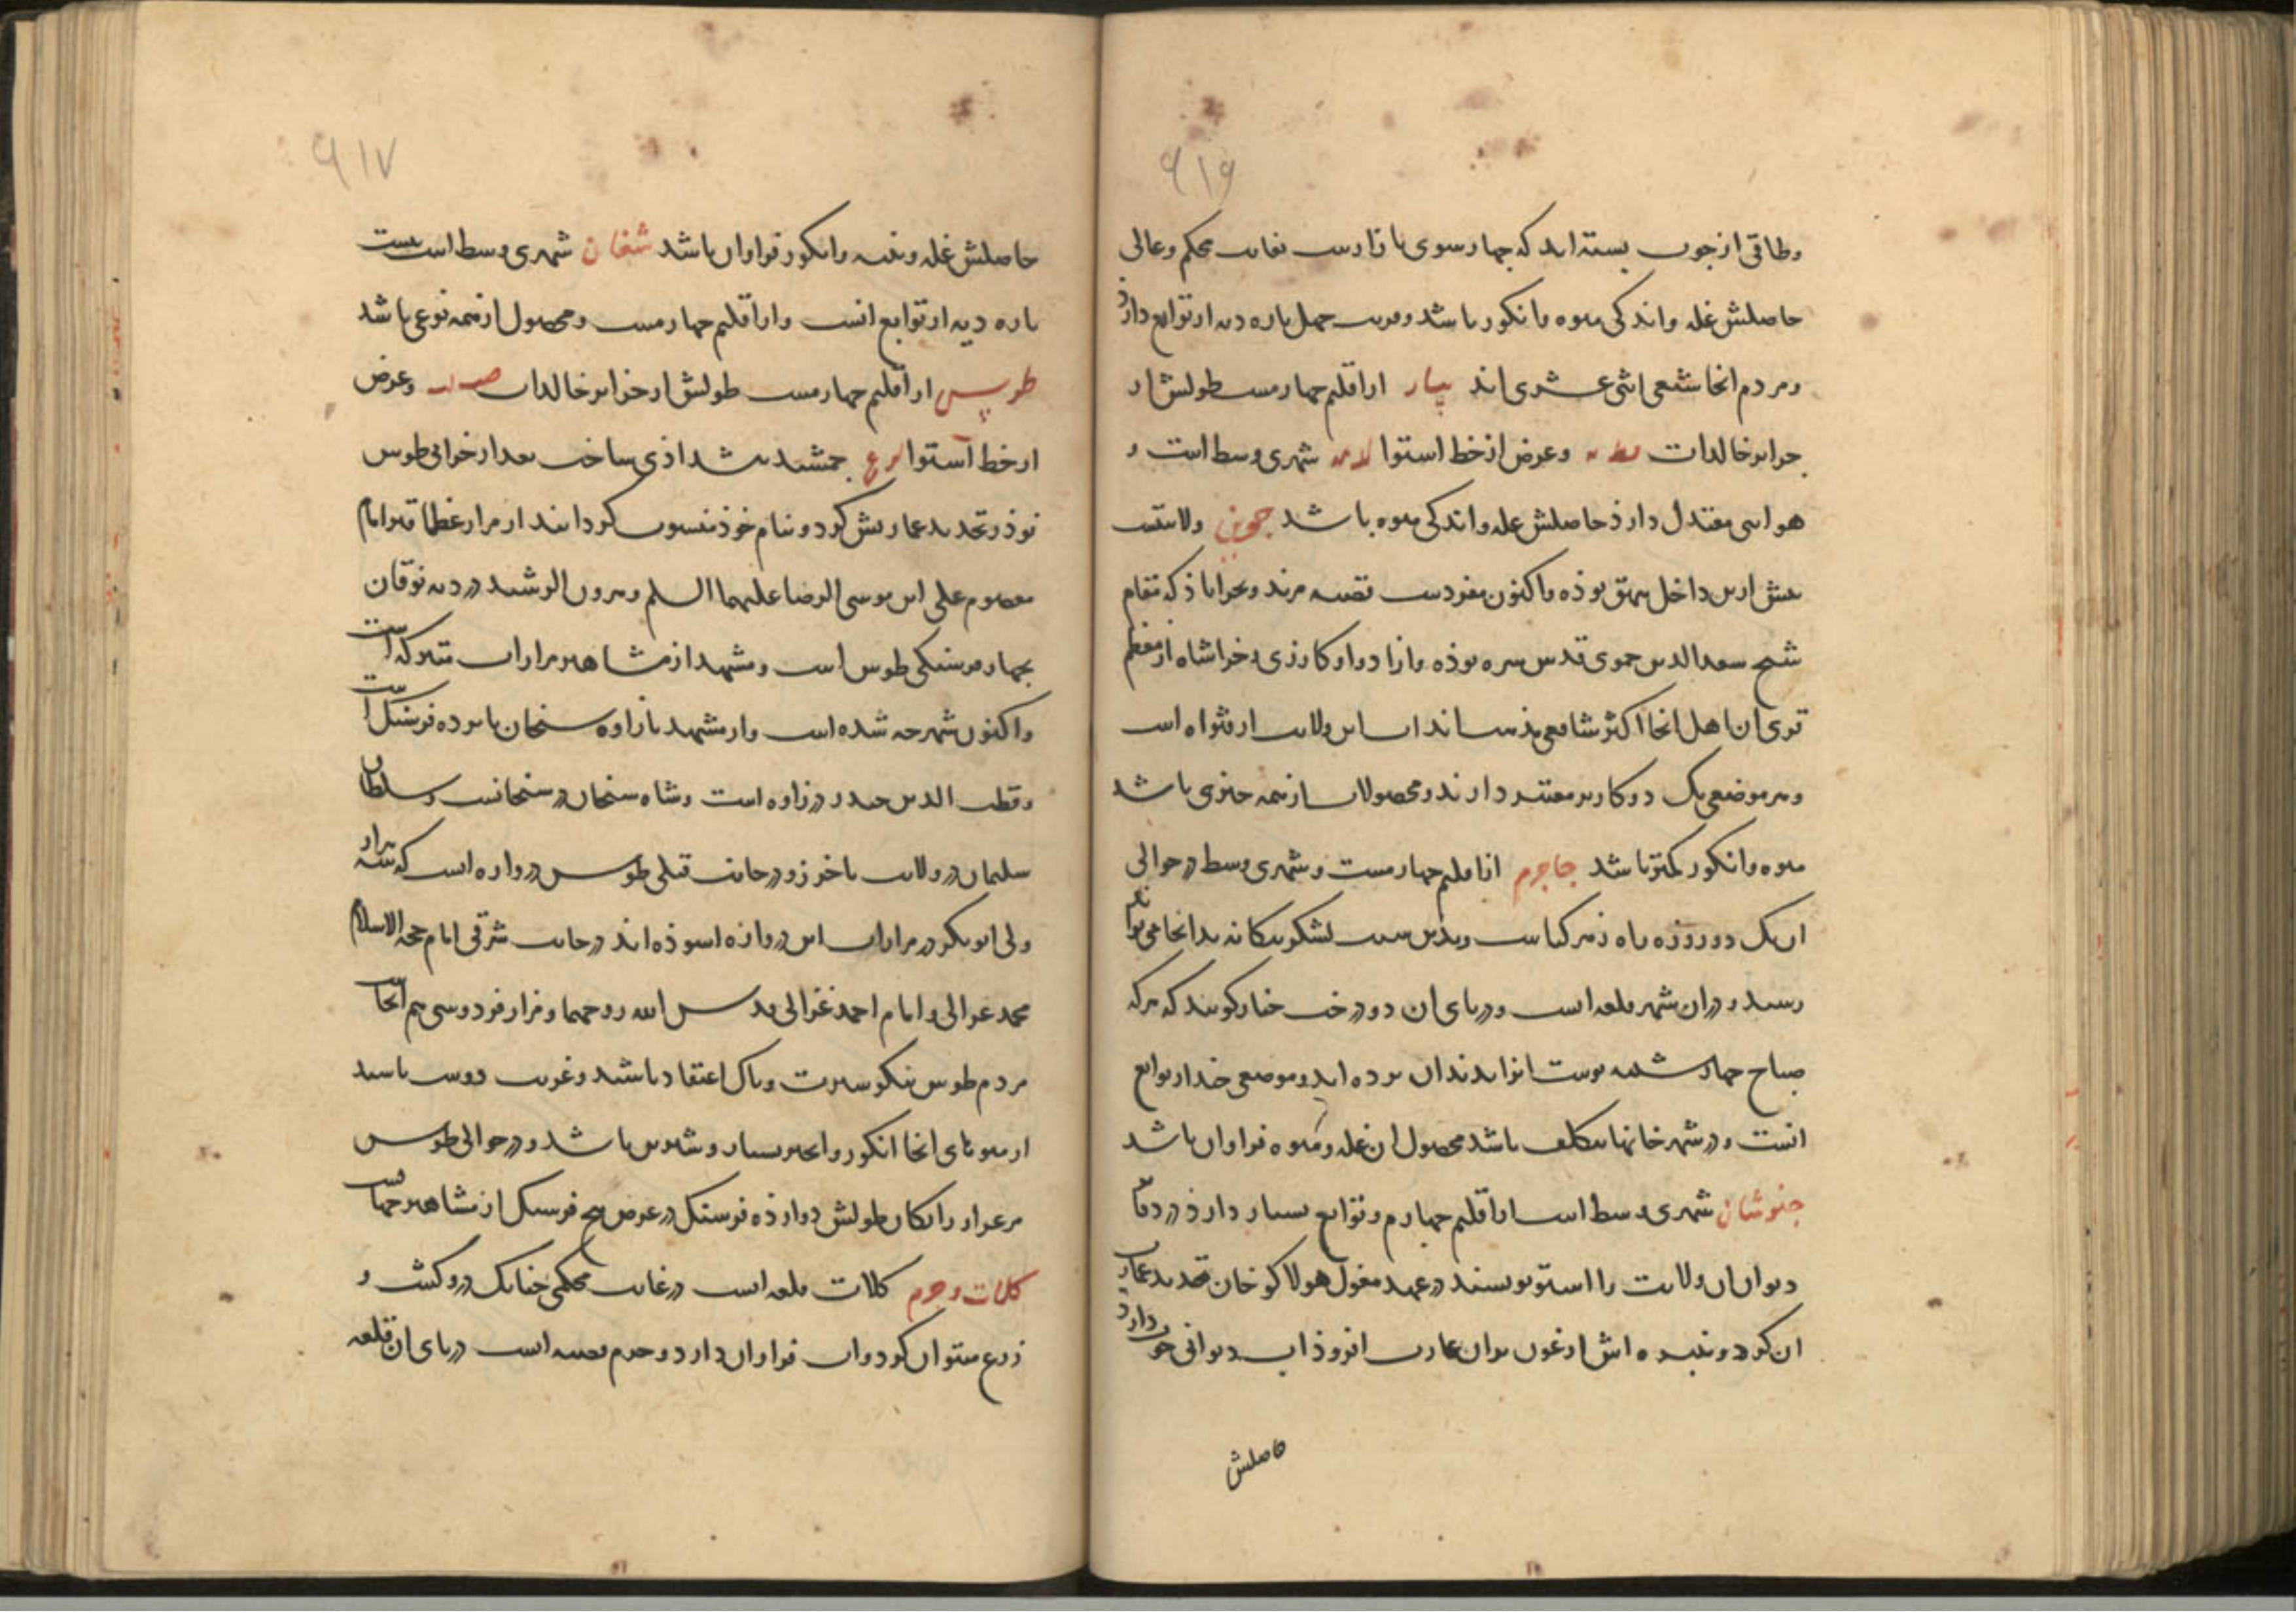 ۶۱۶
وطاقی از چوب بسته اند که چهارسوی بازارست بغایت محکم وعالی
حاصلش غله واندکی میوه وانکور باشد وقریب چهل پاره دیه از توابع دارذ
ومردم انجا شیعی اثنی عشری اند بیار از اقلیم چهارمست طولش از
جزایر خالدات وعرض از خط استوا شهری وسط است و
هوایی معتدل دارذ حاصلش غله واندکی میوه باشد جوین ولایتیست
پیش ازین داخل بیهق بوذه واکنون مفردست قصبه فریومد وبحراباذ که مقام
شیخ سعدالدین حموی قدس سره بوذه وازادوار وکازری وخراشاه از معظم
قری ان اهل انجا اکثر شافعی مذهب اند اب این ولایت از قنواة است
وهر موضعی یک دو کاریز معتبر دارند ومحصولات از همه چیزی باشد
میوه وانکور کمتر باشد جاجرم از اقلیم چهارمست وشهری وسط در حوالی
ان یک دو روزه راه زهر کیاست وبدین سبب لشکر بیکانه بدانجا نمی تواند
رسید ودران شهر قلعه است ودر پای ان دو درخت چنار کویند که هرکه
صباح چهارشنبه پوست انرا بدندان برده اید وموضعی چند از توابع
انست ودر شهر خانهاء بتکلف باشد محصول ان غله ومیوه فراوان باشد
خبوشان شهری وسط است از اقلیم چهارم وتوابع بسیار دارذ در دفاتر
دیوان ان ولایت را استو نویسند در عهد مغول هولاکو خان تجدید عمارت
ان کرد ونبیره اش ارغون بران عمارت افزوذ اب وهوائی خوب دارذ
حاصلش
۶۱۷
حاصلش غله وپنبه وانکور فراوان باشد شغان شهری وسط است بیست
پاره دیه از توابع انست واز اقلیم چهارمست ومحصول از همه نوعی باشد
طوس از اقلیم چهارمست طولش از جزایر خالدات وعرض
از خط استوا جمشید پیشداذی ساخت بعد از خرابی طوس
نوذر تجدید عمارتش کرد وبنام خوذ منسوب کردانید از مزار عظما قبر امام
معصوم علی ابن موسی الرضا علیهما السلم وهرون الرشید در دیه نوقان
بچهار فرسنکی طوس است ومشهد از مشاهیر مزارات متبرکه است
واکنون شهرچه شده است واز مشهد تا زاوه سنجان پانزده فرسنک است
وقطب الدین حیدر در زاوه است وشاه سنجان در سنجانست وسلطان
سلیمان در ولایت باخرز ودر جانب قبلی طوس دروازه است که سه هزار
ولی ابوبکر در مزارات این دروازه اسوذه اند در جانب شرقی امام حجة الاسلام
محمد غزالی وامام احمد غزالی قدس الله روحهما ومزار فردوسی هم انجاست
مردم طوس نیکو سیرت وپاک اعتقاد باشند وغریب دوست باشند
از میوهای انجا انکور وانجیر بسیار وشیرین باشد ودر حوالی طوس
مرغزار رایکان طولش دوازذه فرسنک در عرض پنج فرسنک از مشاهیر جهانست
کلات وجرم کلات قلعه است در غایت محکمی چنانک درو کشت و
زرع میتوان کرد واب فراوان دارد وجرم قصبه است در پای ان قلعه